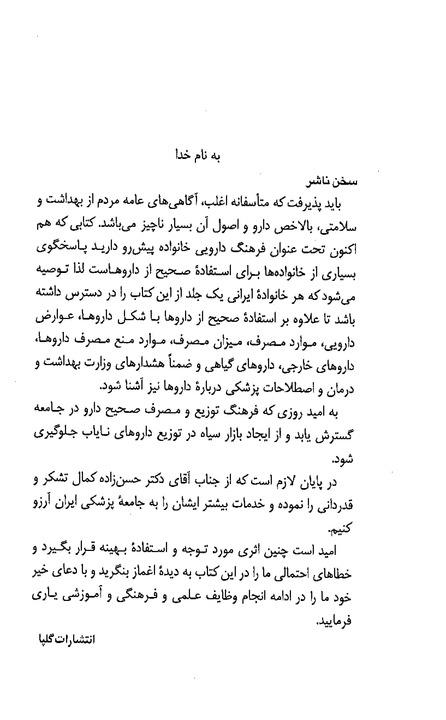 به نام خدا
سخن ناشر
باید پذیرفت که متأسفانه اغلب، آگاهی‌های عامه مردم از بهداشت و
سلامتی، بالاخص دارو و اصول آن بسیار ناچیز می‌باشد. کتابی که هم
اکنون تحت عنوان فرهنگ دارویی خانواده پیش‌رو دارید پاسخگوی
بسیاری از خانواده‌ها برای استفادهٔ صحیح از داروهاست لذا توصیه
می‌شود که هر خانوادهٔ ایرانی یک جلد از این کتاب را در دسترس داشته
باشد تا علاوه بر استفادهٔ صحیح از داروها با شکل داروها، عوارض
دارویی، موارد مصرف، میزان مصرف، موارد منع مصرف داروها،
داروهای خارجی، داروهای گیاهی و ضمناً هشدارهای وزارت بهداشت و
درمان و اصطلاحات پزشکی دربارهٔ داروها نیز آشنا شود.
به امید روزی که فرهنگ توزیع و مصرف صحیح دارو در جامعه
گسترش یابد و از ایجاد بازار سیاه در توزیع داروهای نایاب جلوگیری
شود.
در پایان لازم است که از جناب آقای دکتر حسن‌زاده کمال تشکر و
قدردانی را نموده و خدمات بیشتر ایشان را به جامعهٔ پزشکی ایران آرزو
کنیم.
امید است چنین اثری مورد توجه و استفادهٔ بهینه قرار بگیرد و
خطاهای احتمالی ما را در این کتاب به دیدهٔ اغماز بنگرید و با دعای خیر
خود ما را در ادامه انجام وظایف علمی و فرهنگی و آموزشی یاری
فرمایید.
انتشارات گلپا